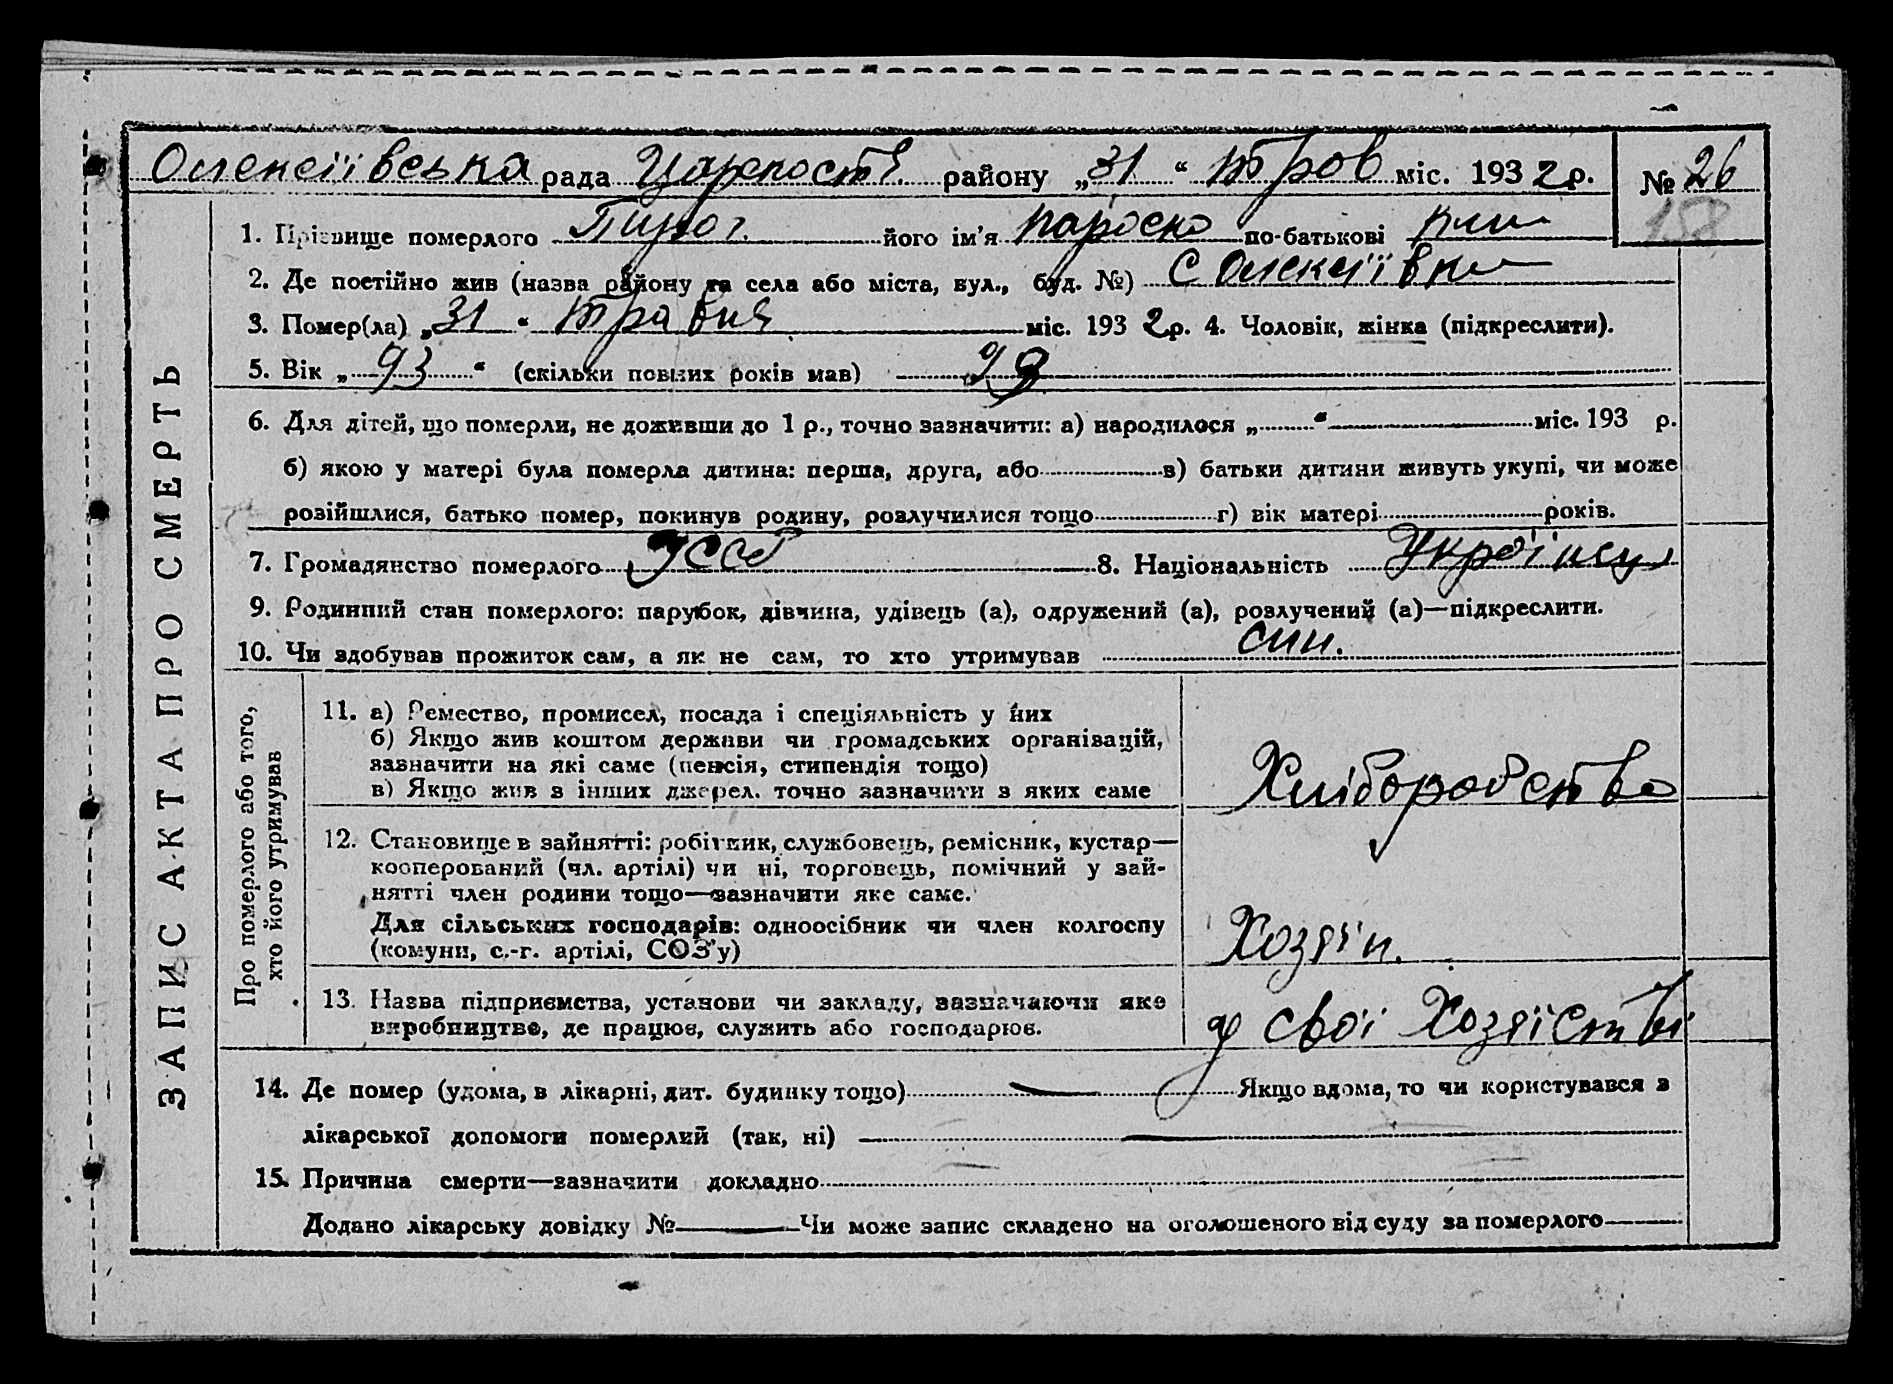 Олексіївська рада район​у „31“ трав міс. 1932 р. № 26
158
1. Прізвище померлого Пирог його ім'я по-батькові
2. Де постійно жив (назва району та села або міста, вул., буд. №) с Олексіївка
3. Помер(ла) „31“ травня міс. 1932 р. 4. Чоловік, жінка (підкреслити).
5. Вік „93“ (скільки повних років мав) 93
6. Для дітей, що померли, не доживши до 1 р., точно зазначити: а) народилося „ “ міс. 193 р.
б) якою у матері була померла дитина: перша, друга, або в) батьки дитини живуть укупі, чи може
розійшлися, батько помер, покинув родину, розлучилися тощо г) вік матері років.
7. Громадянство померлого УССР 8. Національність
9. Родинний стан померлого: парубок, дівчина, удівець (а), одружений (а), розлучений (а)—підкреслити.
10. Чи здобував прожиток сам, а як не сам, то хто утримував син.
ЗАПИС АКТА ПРО СМЕРТЬ
Про померлого або того,
хто його утримував
11. а) Ремество, промисел, посада і спеціяльність у них
б) Якщо жив коштом держави чи громадських організацій,
зазначити на які саме (пенсія, стипендія тощо)
в) Якщо жив з інших джерел. точно зазначити з яких саме
Хліборобство
12. Становище в зайнятті: робітник, службовець, ремісник, кустар—
кооперований (чл. артілі) чи ні, торговець, помічний у зай-
нятті член родини тощо—зазначити яке саме.
Для сільських господарів: одноосібник чи член колгоспу
(комуни, с.-г. артілі, СОЗ'у)
Хозяїн.
13. Назва підприємства, установи чи закладу, зазначаючи яке
виробництво, де працює, служить або господарює.
у свої Хозяїстві
14. Де помер (удома, в лікарні, дит. будинку тощо) — Якщо вдома, то чи користувався з
лікарської допомоги померлий (так, ні) —
15. Причина смерти—зазначити докладно
Додано лікарську довідку № — Чи може запис складено на оголошеного від суду за померлого